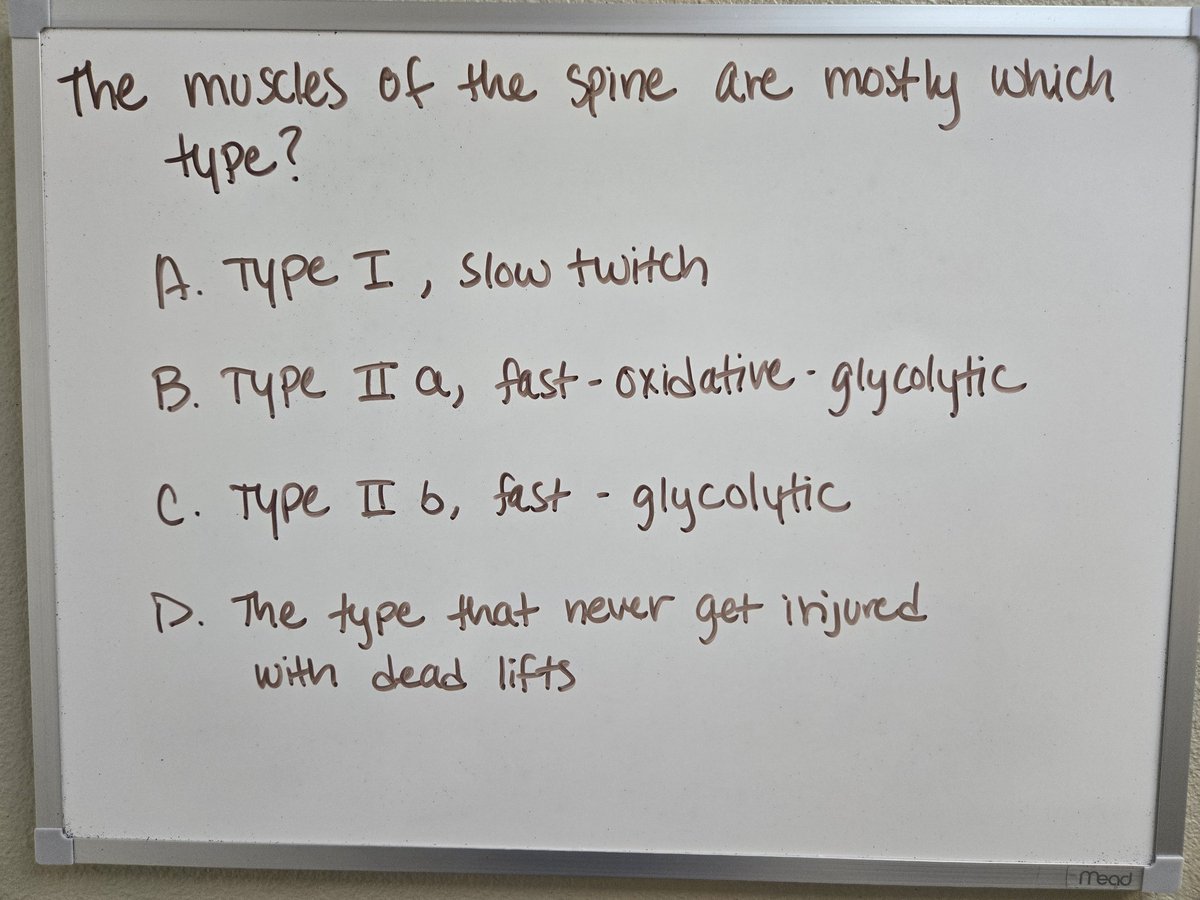 The muscles of the spine are mostly which
type?
A. Type I, slow twitch
B. Type II a, fast-oxidative-glycolytic
C. Type II b, fast-glycolytic
D. The type that never get injured
with dead lifts
Mead